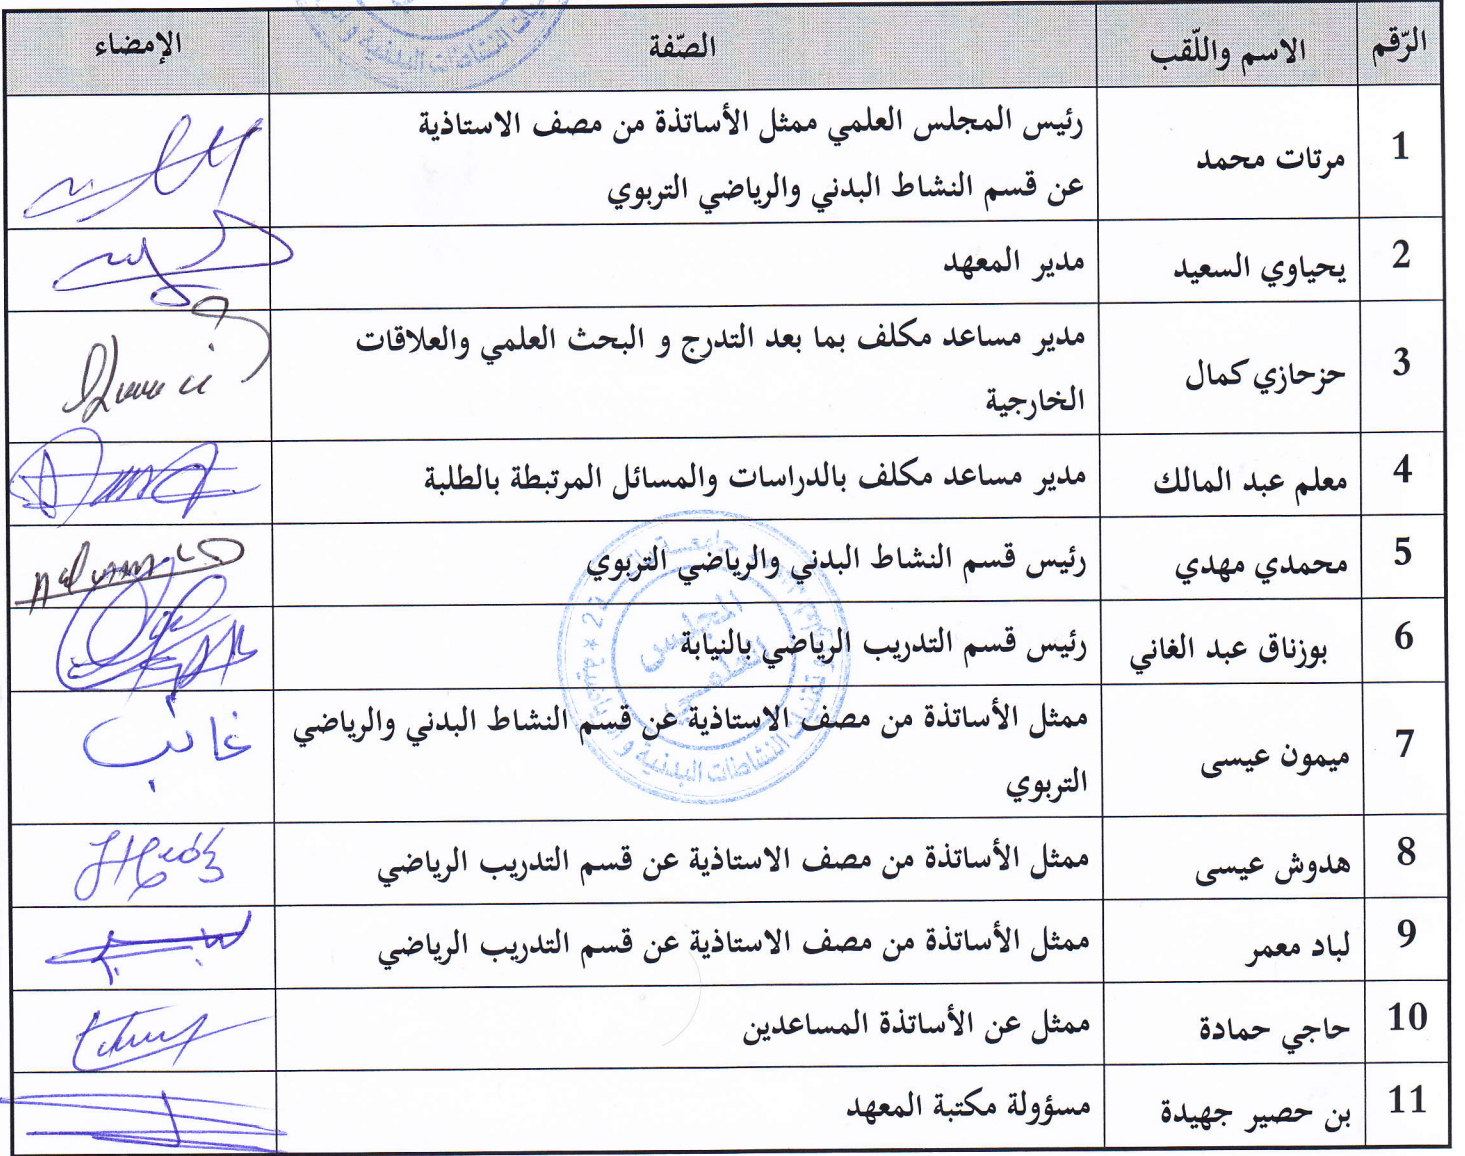 الرّقم الاسم واللّقب الصّفة الإمضاء
1 مرتات محمد رئيس المجلس العلمي ممثل الأساتذة من مصف الاستاذية
عن قسم النشاط البدني والرياضي التربوي
2 يحياوي السعيد مدير المعهد
3 حزحازي كمال مدير مساعد مكلف بما بعد التدرج و البحث العلمي والعلاقات
الخارجية
4 معلم عبد المالك مدير مساعد مكلف بالدراسات والمسائل المرتبطة بالطلبة
5 محمدي مهدي رئيس قسم النشاط البدني والرياضي التربوي
6 بوزناق عبد الغاني رئيس قسم التدريب الرياضي بالنيابة
7 ميمون عيسى ممثل الأساتذة من مصف الاستاذية عن قسم النشاط البدني والرياضي
التربوي
غائب
8 هدوش عيسى ممثل الأساتذة من مصف الاستاذية عن قسم التدريب الرياضي
9 لباد معمر ممثل الأساتذة من مصف الاستاذية عن قسم التدريب الرياضي
10 حاجي حمادة ممثل عن الأساتذة المساعدين
11 بن حصير جهيدة مسؤولة مكتبة المعهد
المجلس
العلمي
النشاطات البدنية و الرياضية